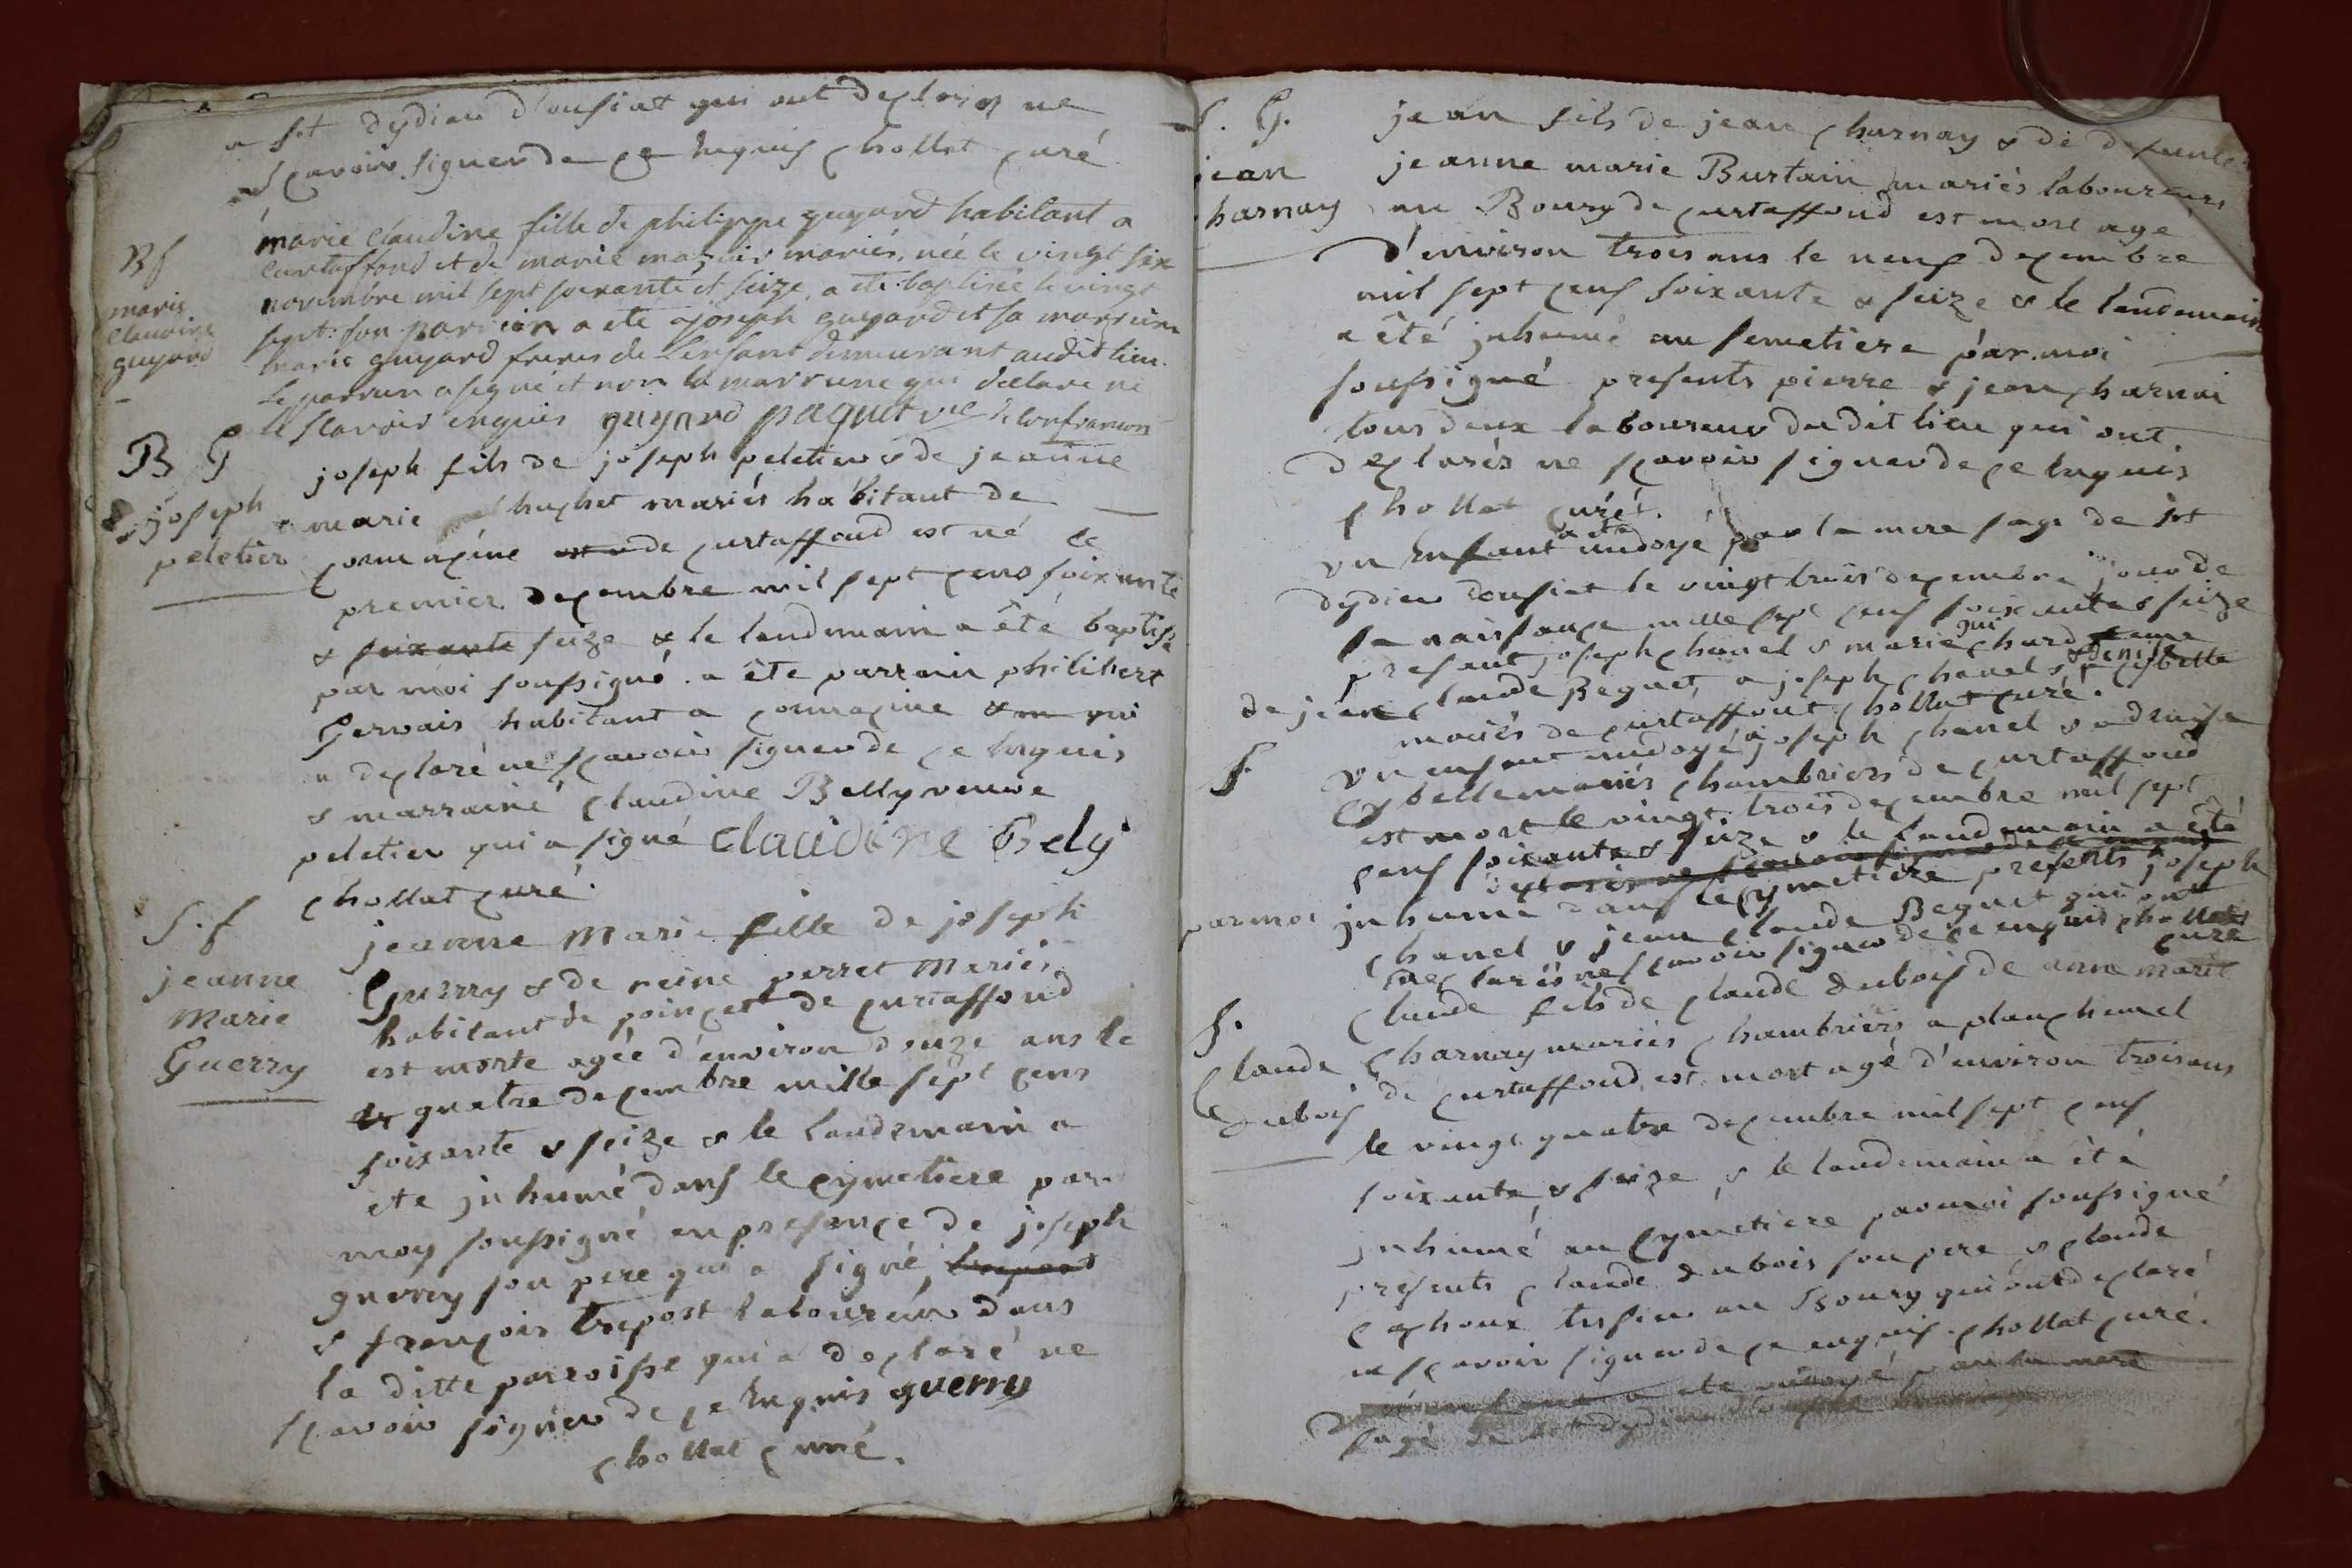 a st dydieu d'ousiat qui ont declarés ne
scavoir signer de ce enquis chollat curé
Bf
marie
claudine
guyard
marie claudine fille de philippe guyard habitant a
curtaffond et de marie mariés, née le vingt six
novembre mil sept soixante et seize a été baptisée le vingt
sept: son parrain a été joseph guyard et sa marraine
marie guyard freres de l'enfant demeurant audit lieu.
le parrain a signé et non la marraine qui declare ne
le scavoir enquis guyard paquet vic de confrancon
B G
joseph
peletier
joseph fils de joseph peletier & de jeanne
marie huchet mariés habitant de
conmacine de curtaffond est né le
premier decembre mil sept cens soixante
& soixante seize & le landemain a été baptisé
par moi soussigné. a été parrain philibert
Gervais habitant a conmacine & m qui
a declaré ne scavoir signer de ce enquis
& marraine claudine Belly veuve
peletier qui a signé claudine Bely
chollat curé.
S. f
jeanne
Marie
Guerry
jeanne Marie fille de joseph
Guerry & de reine perret Mariés
habitant de poincet de curtaffond
est morte agée d'environ douze ans le
quatre decembre mille sept cens
soixante & seize & le landemain a
ete inhumé dans le cymetiere par
moy soussigné en presence de joseph
guerry son pere qui a signé, trepost
& françois trepost laboureur dans
la ditte parroisse qui a declaré ne
scavoir signer de ce enquis guerry
chollat curé.
S. G.
jean
charnay
jean fils de jean charnay & de defunte
jeanne marie Burtain mariés laboureurs
au Bourg de curtaffond est mort agé
d'environ trois ans le neuf decembre
mil sept cens soixante & seize & le landemain
a été inhumé au semetiere par moi
soussigné presents pierre & jean charnai
tous deux laboureur dudit lieu qui ont
declarés ne scavoir signer de ce enquis
chollat curé.
un enfant a ete undoyé par la mere sage de st
dydieu dousiat le vingt trois decembre jour de
sa naissance mille sept cens soixante & seize
present joseph chanel & marie guichard femme
de jean claude Beguet, a joseph chanel & denise cybelle
mariés de curtaffont chollat curé.
S.
un enfant undoyé a joseph chanel & a denise
cybelle mariés chambriers de curtaffond
est mort le vingt trois decembre mil sept
cens soixante & seize & le landemain a été
declarés ne scavoir signer de ce enquis
par moi inhumé dans le cymetiere presents joseph
chanel & jean claude Beguet qui ont
declarés ne scavoir signer de ce enquis chollat
curé
S.
claude
dubois
claude fils de claude dubois & de anne marie
charnay mariés chambriers a planchanel
de curtaffond est mort agé d'environ trois ans
le vingt quatre decembre mil sept cens
soixante & seize, & le landemain a été
inhumé au cymetiere par moi soussigné
presents claude dubois son pere & claude
au Bourg qui ont declaré
ne scavoir signer de ce enquis chollat curé.
un enfant a ete undoyé par la mere
sage de st dydieu